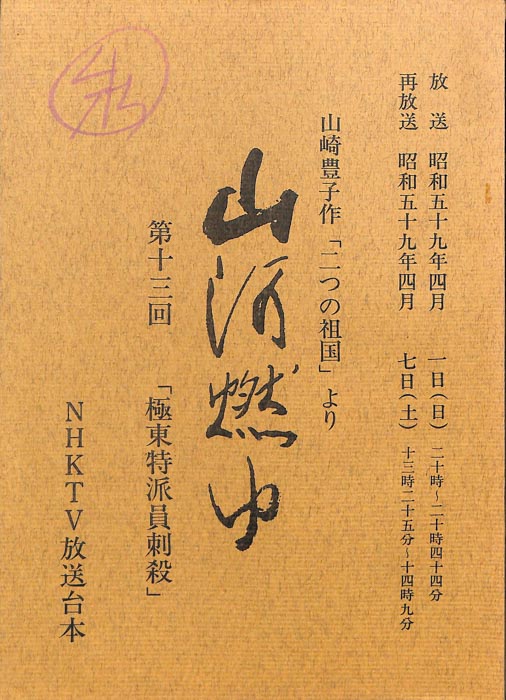 放送 昭和五十九年四月 一日(日) 二十時~二十時四十四分
再放送 昭和五十九年四月 七日(土) 十三時二十五分~十四時九分
山崎豊子作「二つの祖国」より
山河燃ゆ
第十三回 「極東特派員刺殺」
NHKTV放送台本